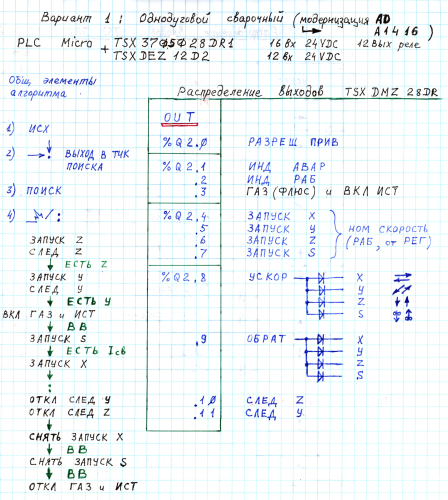 Вариант 1 ; Однодуговой сварочный (модернизация АД
А1416)
PLC Micro + TSX 3705028DR1 16 Вх 24VDC 12 Вых реле
TSX DEZ 12D2 12 Вх 24 VDC
Общ, элементы
алгоритма
Распределение выходов TSX DMZ 28DR
OUT
1) ИСХ
%Q2.0 РАЗРЕШ ПРИВ
2) ВЫХОД В ТЧК
ПОИСКА
%Q2.1 ИНД АВАР
.2 ИНД РАБ
3) ПОИСК
.3 ГАЗ (ФЛЮС) и ВКЛ ИСТ
4)
%Q2,4 ЗАПУСК X
.5 ЗАПУСК Y
.6 ЗАПУСК Z
.7 ЗАПУСК S
НОМ СКОРОСТЬ
(РАБ, от РЕГ)
ЗАПУСК Z
СЛЕД Z
ЕСТЬ Z
ЗАПУСК Y
СЛЕД Y
ЕСТЬ Y
ВКЛ ГАЗ и ИСТ
ВВ
ЗАПУСК S
ЕСТЬ Iсв
ЗАПУСК X
%Q2,8 УСКОР X
Y
Z
S
.9 ОБРАТ X
Y
Z
S
ОТКЛ СЛЕД Y
ОТКЛ СЛЕД Z
.10 СЛЕД Z
.11 СЛЕД Y
СНЯТЬ ЗАПУСК X
ВВ
СНЯТЬ ЗАПУСК S
ВВ
ОТКЛ ГАЗ и ИСТ